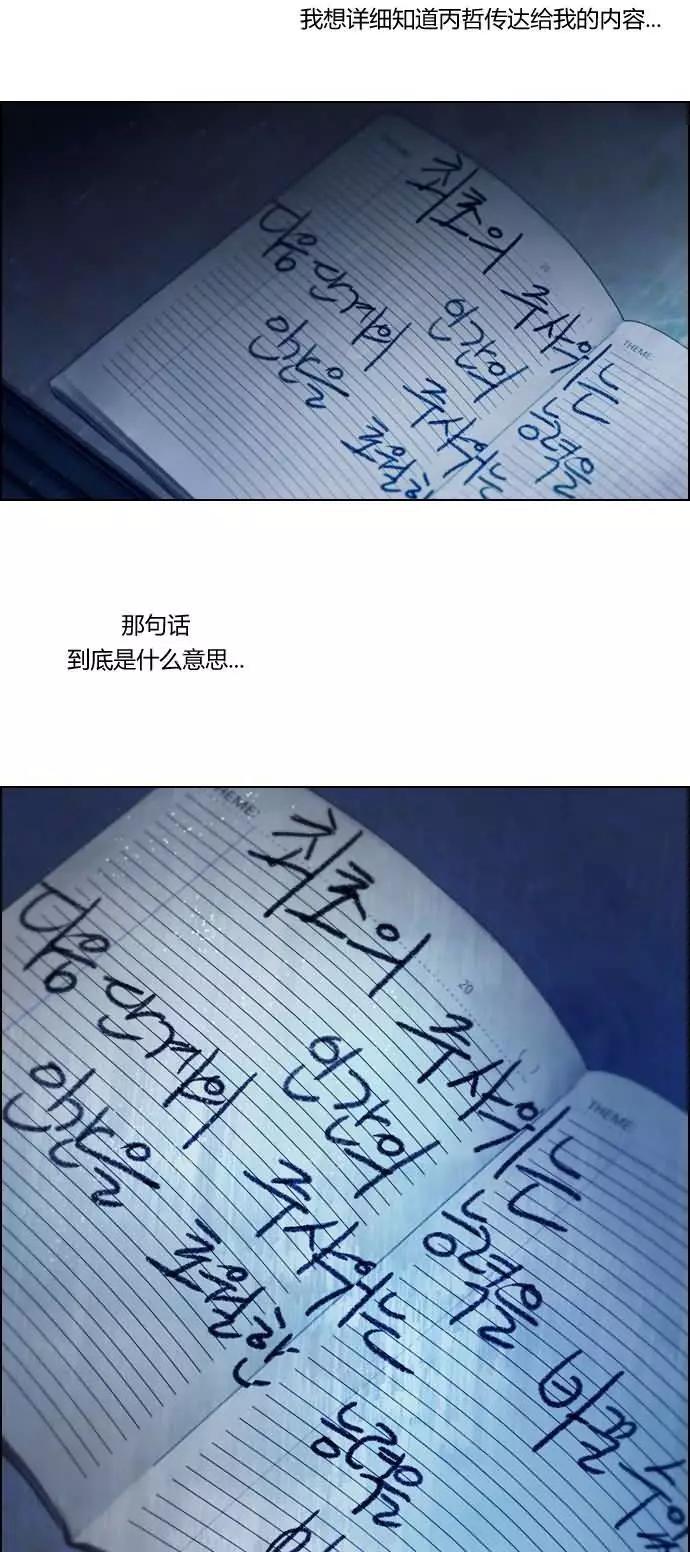 我想详细知道丙哲传达给我的内容...
THEME:
20
최초의 주사위는
THEME:
인간의 능력을
다음 단계의 주사위는
인간을 초월한
那句话
到底是什么意思...
THEME:
20
최초의 주사위는
THEME:
인간의 능력을 받을 수
다음 단계의 주사위는
인간을 초월한 능력을